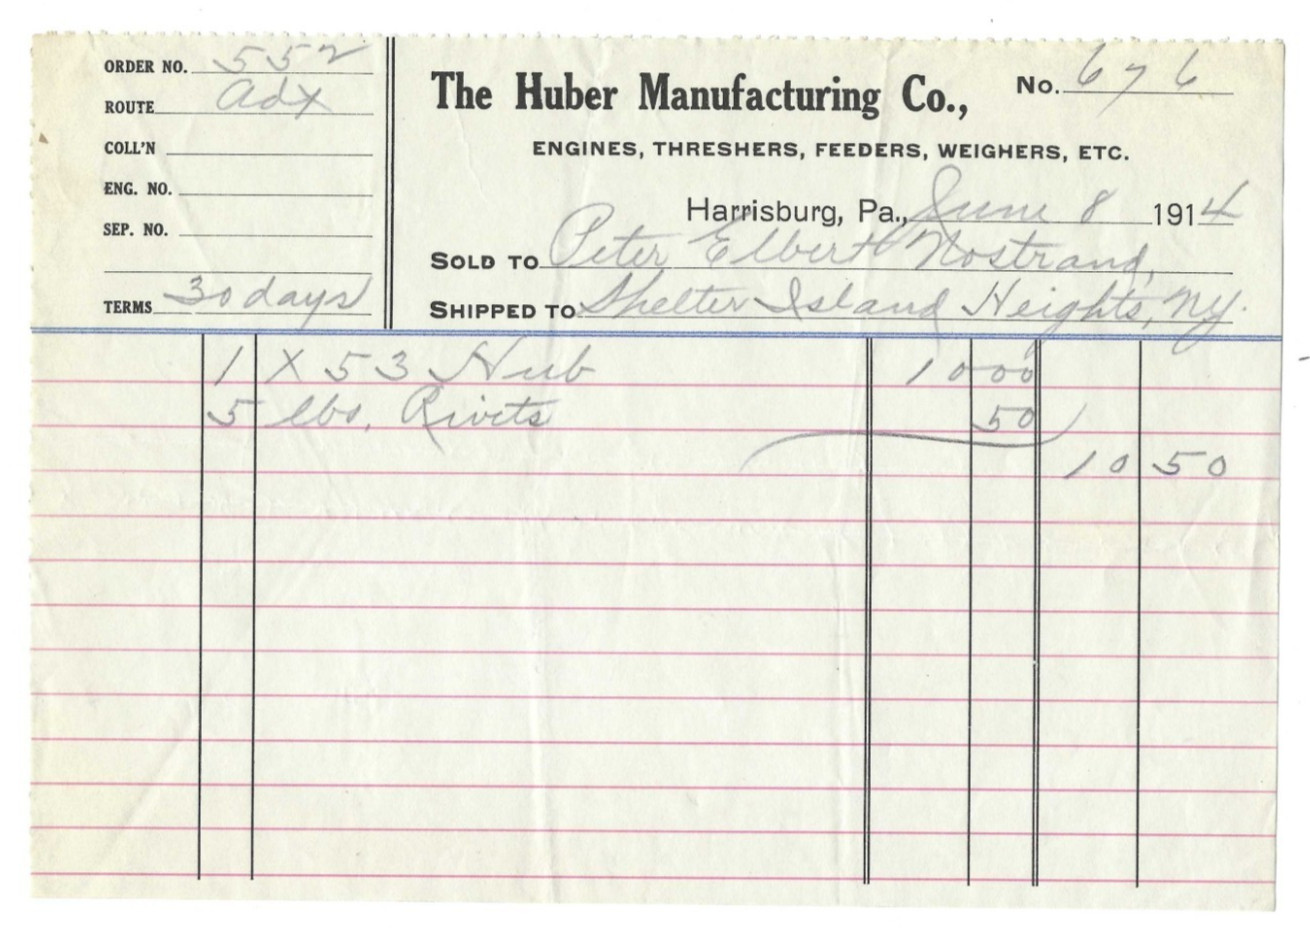 ORDER NO. 552
ROUTE Adx
COLL'N
ENG. NO.
SEP. NO.
TERMS 30 days
The Huber Manufacturing Co.,
No. 676
ENGINES, THRESHERS, FEEDERS, WEIGHERS, ETC.
Harrisburg, Pa., June 8 1914
SOLD TO Peter Elbert Nostrand,
SHIPPED TO Shelter Island Heights, NY.
1 X 53 Hub 10 00
5 lbs. Rivets 50
10 50